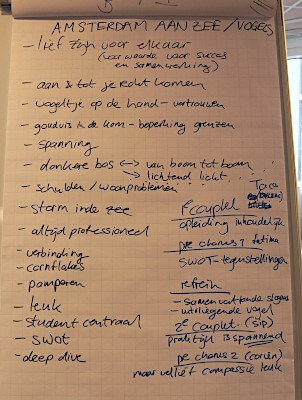 AMSTERDAM AAN ZEE / VOGELS
- lief zijn voor elkaar
(voorwaarde voor succes
en samenwerking)
- aan & tot je recht komen
- vogeltje op de hand - vertrouwen
- goudvis in de kom - beperking grenzen
- spanning
- donkere bos ↔ van boom tot boom
↔ lichtend licht
- schulden / woonproblemen
- storm in de zee
- altijd professioneel
- verbinding
- cornflakes
- pamperen
- leuk
- student centraal
- SWOT
- deep dive
1e couplet
opleiding inhoudelijk
pre chorus 1 fatima
SWOT - tegenstellingen
refrein
- samenvattende slogans
- uitvliegende vogel
2e couplet (sip)
praktijk is spannend
pre chorus 2 (corien)
maar verlief compassie leuk